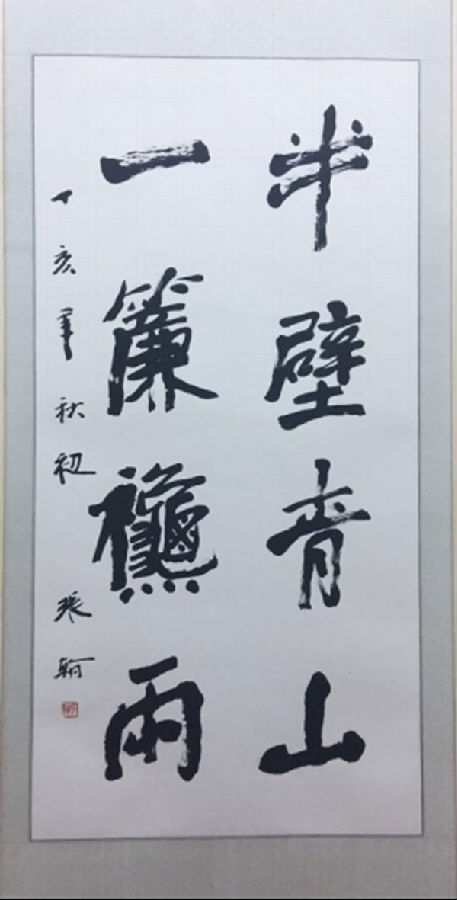 半壁青山
一簾龝雨
丁亥年秋初 張翰